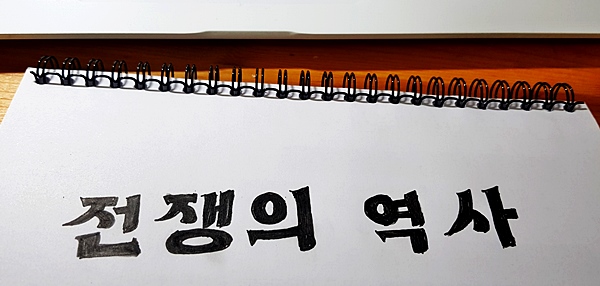 전쟁의 역사